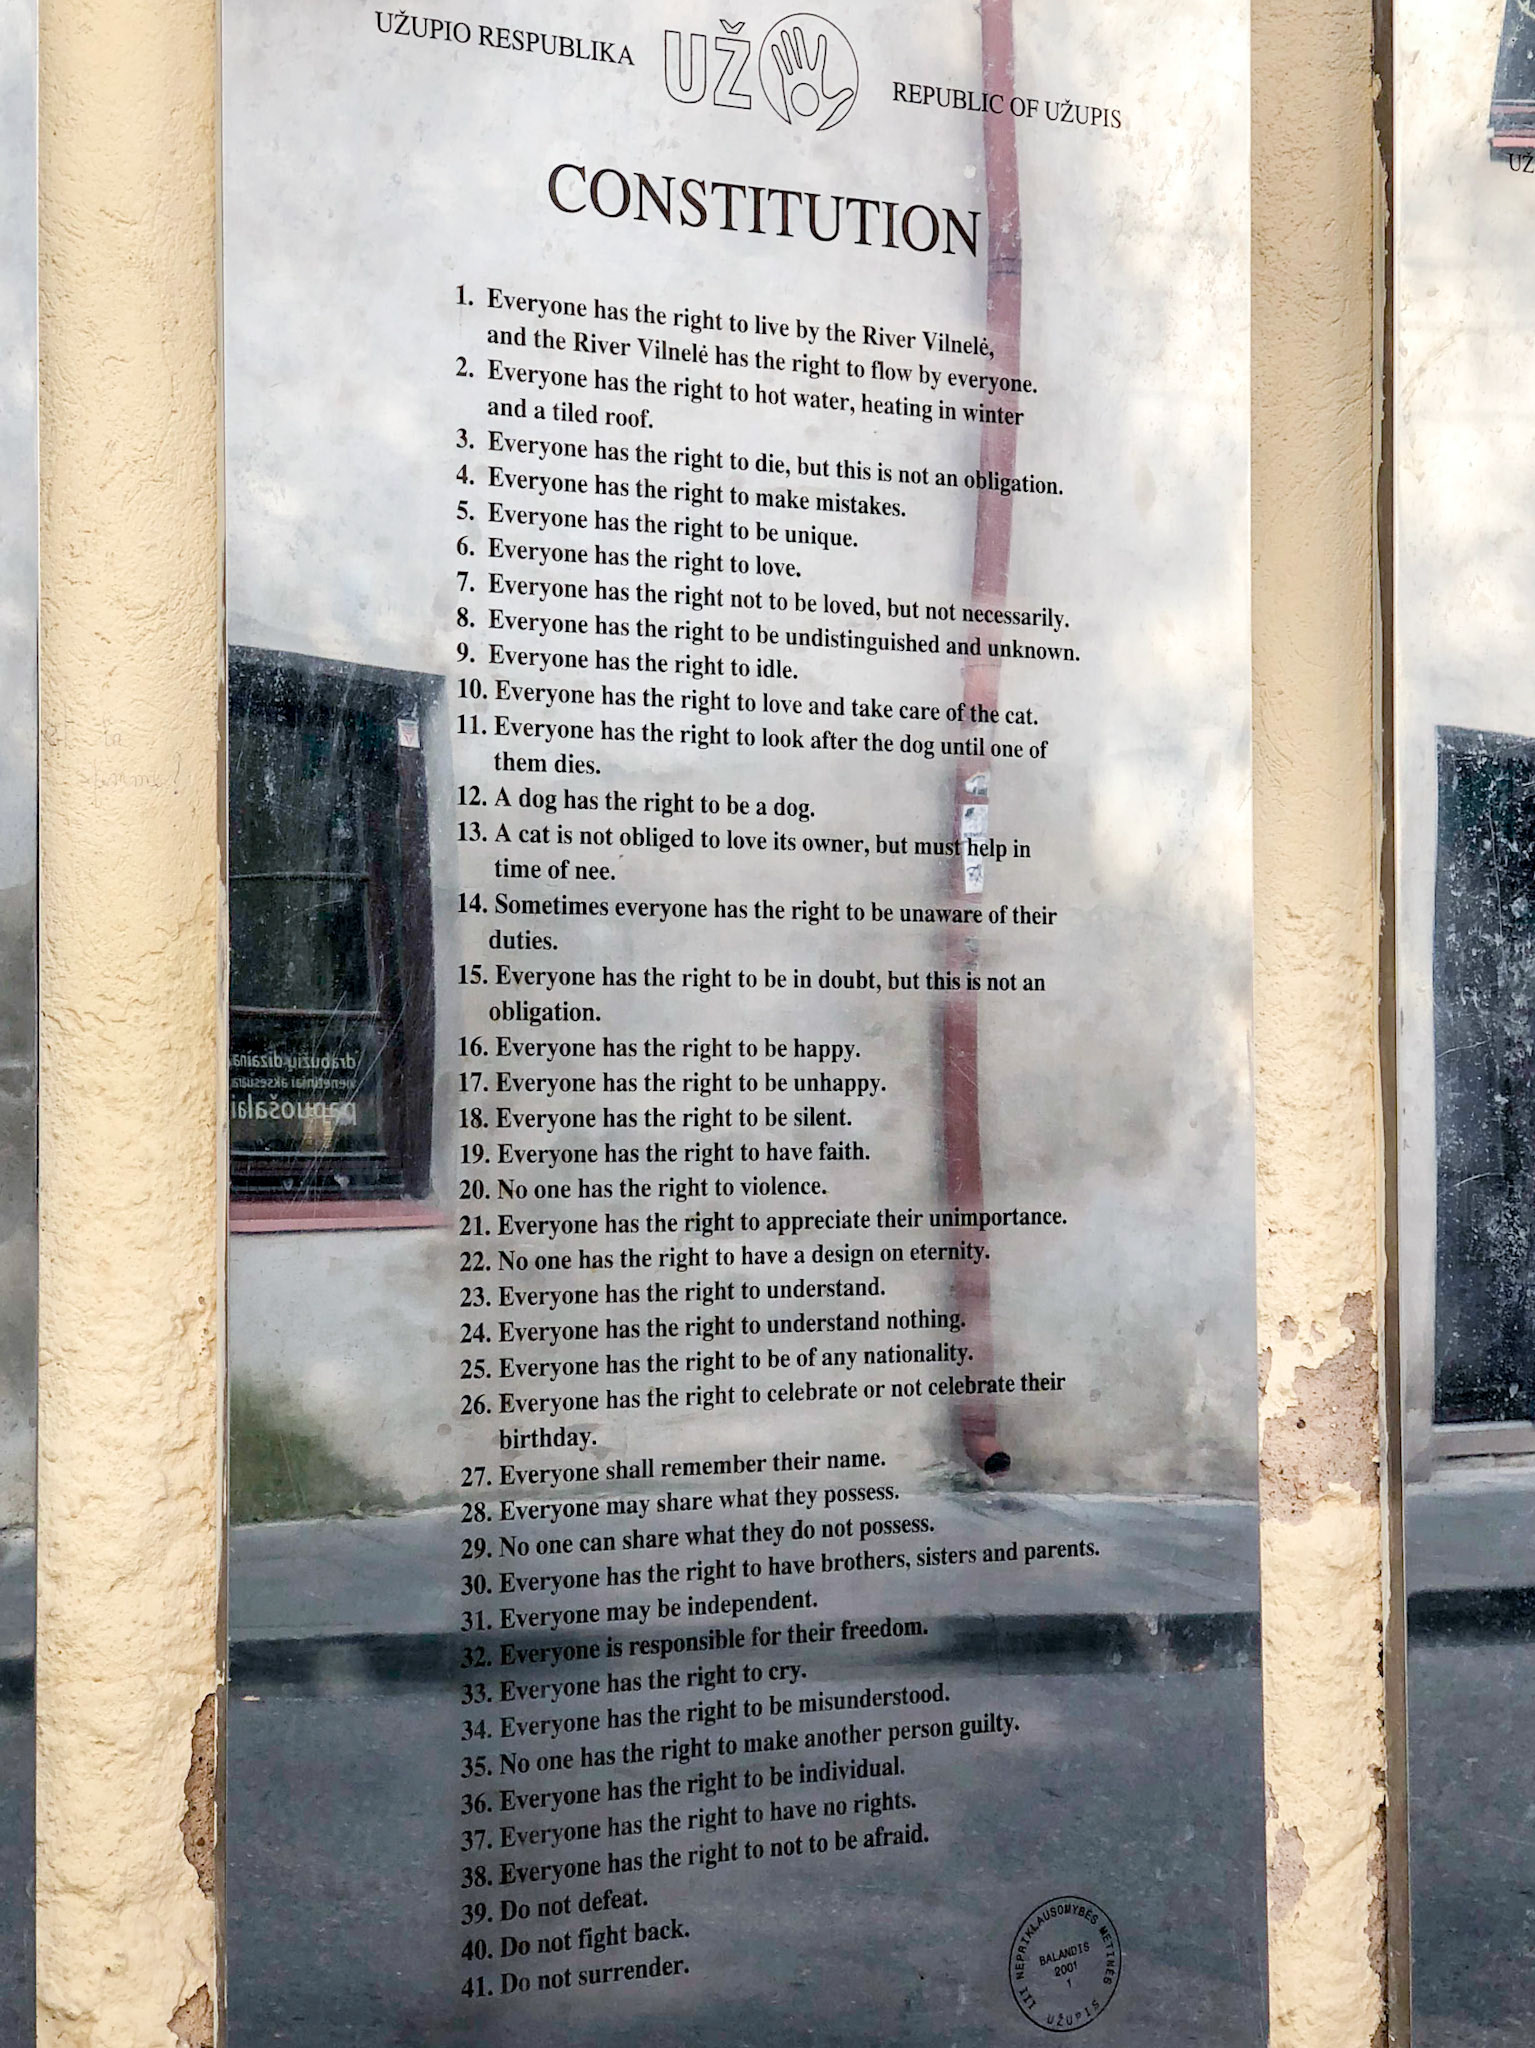 UŽUPIO RESPUBLIKA
UŽ
REPUBLIC OF UŽUPIS
CONSTITUTION
1. Everyone has the right to live by the River Vilnelė,
and the River Vilnelė has the right to flow by everyone.
2. Everyone has the right to hot water, heating in winter
and a tiled roof.
3. Everyone has the right to die, but this is not an obligation.
4. Everyone has the right to make mistakes.
5. Everyone has the right to be unique.
6. Everyone has the right to love.
7. Everyone has the right not to be loved, but not necessarily.
8. Everyone has the right to be undistinguished and unknown.
9. Everyone has the right to idle.
10. Everyone has the right to love and take care of the cat.
11. Everyone has the right to look after the dog until one of
them dies.
12. A dog has the right to be a dog.
13. A cat is not obliged to love its owner, but must help in
time of nee.
14. Sometimes everyone has the right to be unaware of their
duties.
15. Everyone has the right to be in doubt, but this is not an
obligation.
16. Everyone has the right to be happy.
17. Everyone has the right to be unhappy.
18. Everyone has the right to be silent.
19. Everyone has the right to have faith.
20. No one has the right to violence.
21. Everyone has the right to appreciate their unimportance.
22. No one has the right to have a design on eternity.
23. Everyone has the right to understand.
24. Everyone has the right to understand nothing.
25. Everyone has the right to be of any nationality.
26. Everyone has the right to celebrate or not celebrate their
birthday.
27. Everyone shall remember their name.
28. Everyone may share what they possess.
29. No one can share what they do not possess.
30. Everyone has the right to have brothers, sisters and parents.
31. Everyone may be independent.
32. Everyone is responsible for their freedom.
33. Everyone has the right to cry.
34. Everyone has the right to be misunderstood.
35. No one has the right to make another person guilty.
36. Everyone has the right to be individual.
37. Everyone has the right to have no rights.
38. Everyone has the right to not to be afraid.
39. Do not defeat.
40. Do not fight back.
41. Do not surrender.
III NEPRIKLAUSOMYBĖS METINĖS
BALANDIS
2001
1
UŽUPIS
drabužių dizaina
vienetiniai aksesuarai
papuošalai
UŽ